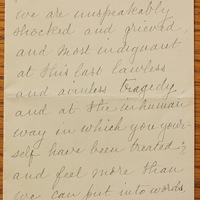 We are unspeakably
shocked and grieved
and most indignant
at this last lawless
and aimless tragedy,
and at the inhuman
way in which you your-
self have been treated;
and feel more than
we can put into words,